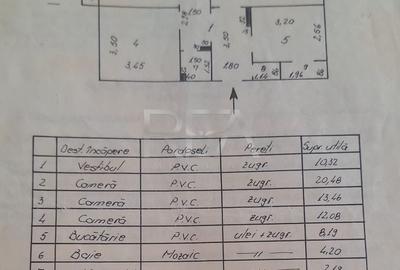 1,50
2,28
1
3,20
3,50
4
2,50
5
2,56
3,45
1,50
7
1,52
180
8
9
1,14
1,96
Dest. încăpere Pardoseli Pereți Supr utilă
1 Vestibul P.V.C. zugr. 10,32
2 Cameră P.V.C. zugr. 20,48
3 Cameră P.V.C. zugr. 13,46
4 Cameră P.V.C. zugr. 12,08
5 Bucătărie P.V.C. ulei + zugr. 8,19
6 Baie Mozaic —〃— 4,20